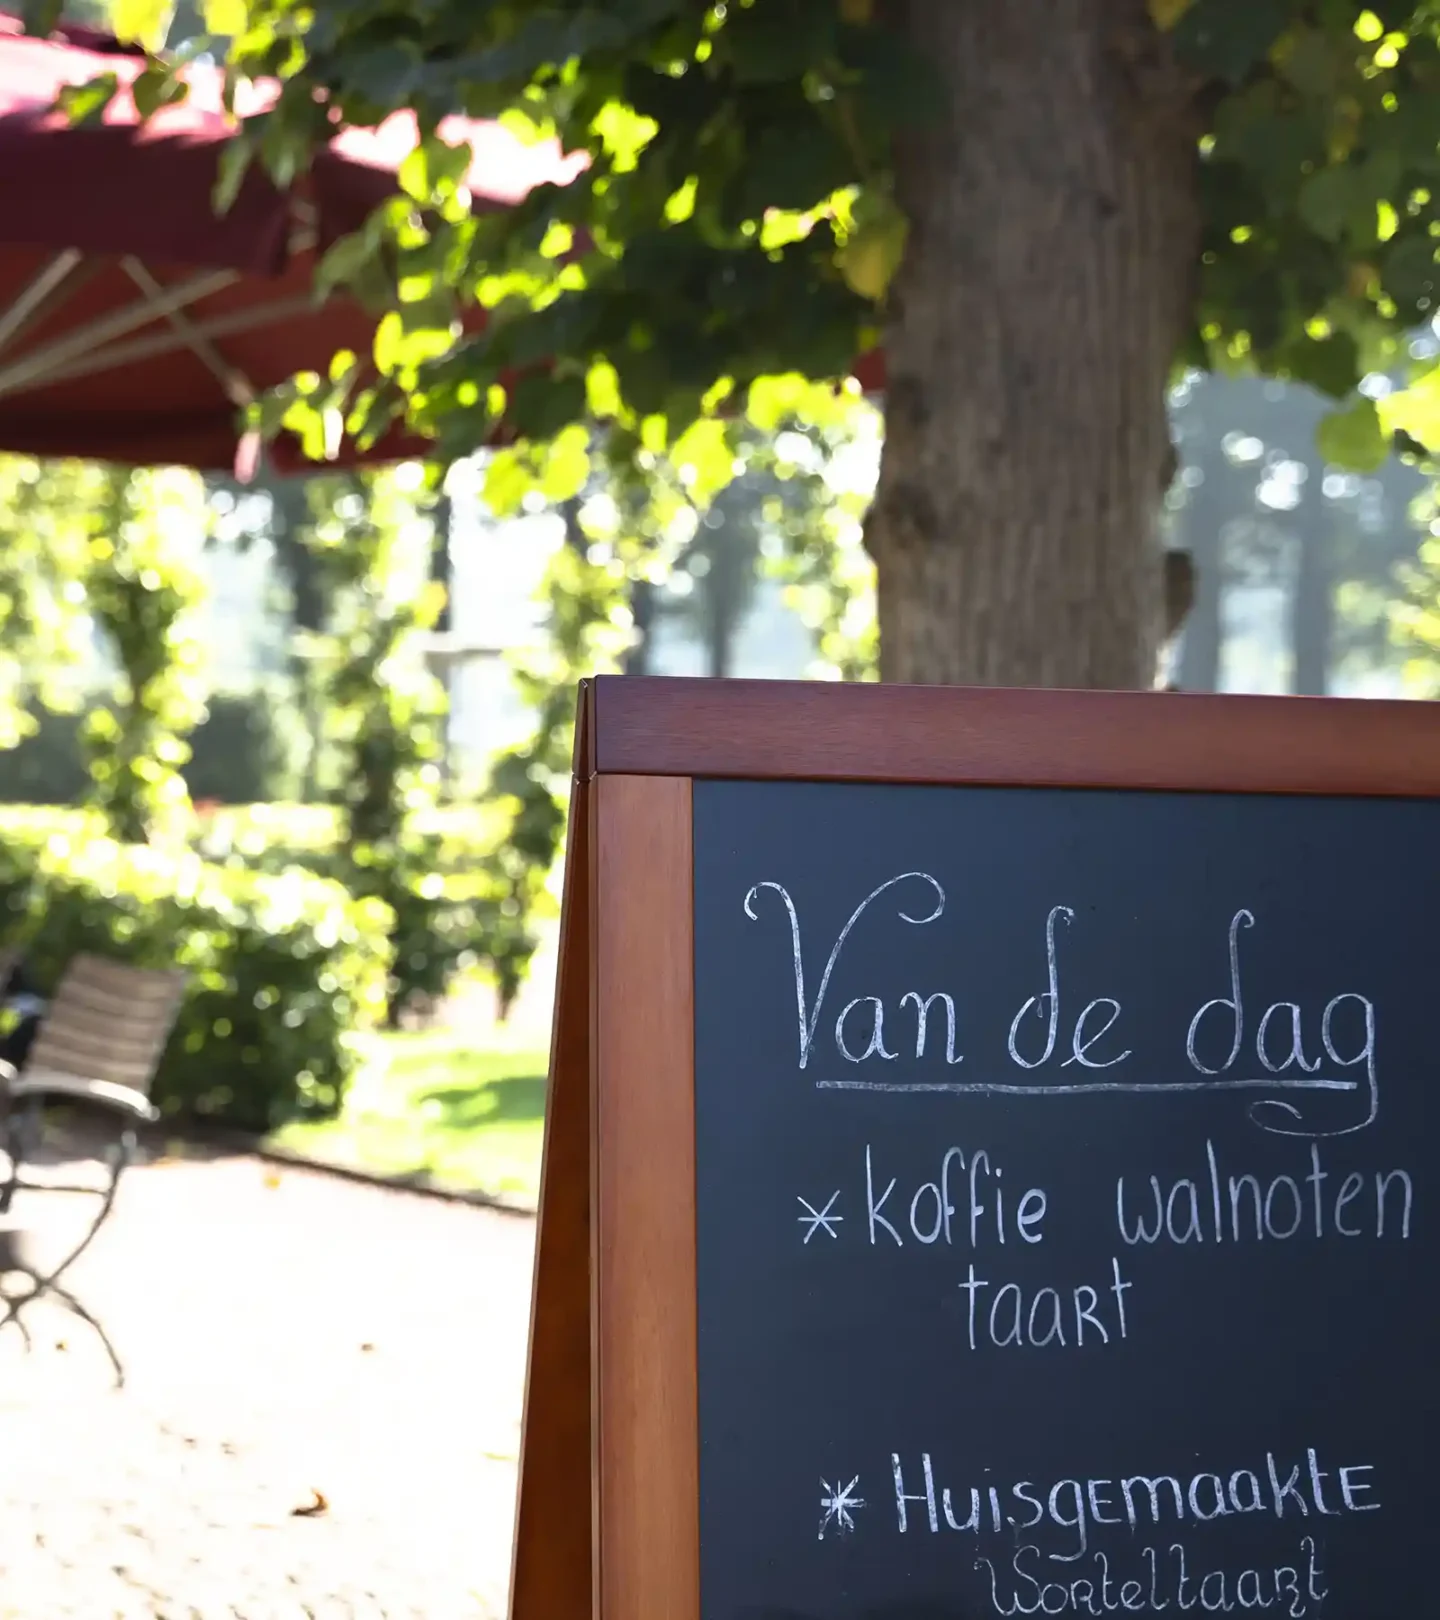 Van de dag
* koffie walnoten
taart
* Huisgemaakte
Worteltaart